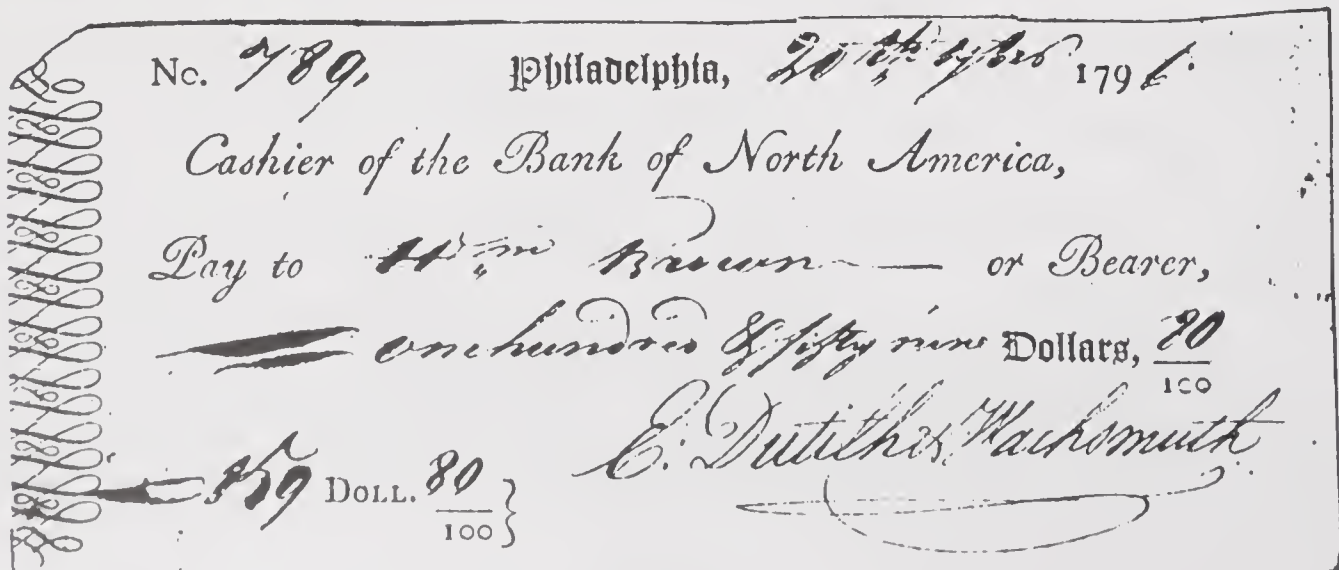 No. 789, Philadelphia, 20th 1796
Cashier of the Bank of North America,
Pay to Wm Brown or Bearer,
one hundred & fifty nine Dollars, 80/100
E. Dutilh & Wachsmuth
159 DOLL. 80/100 }